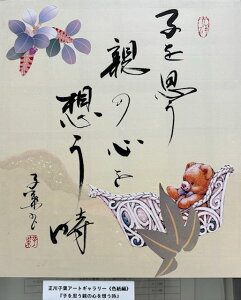 子を思う
親の心を
想う時
正川子葉アートギャラリー《色紙編》
『子を思う親の心を想う時』